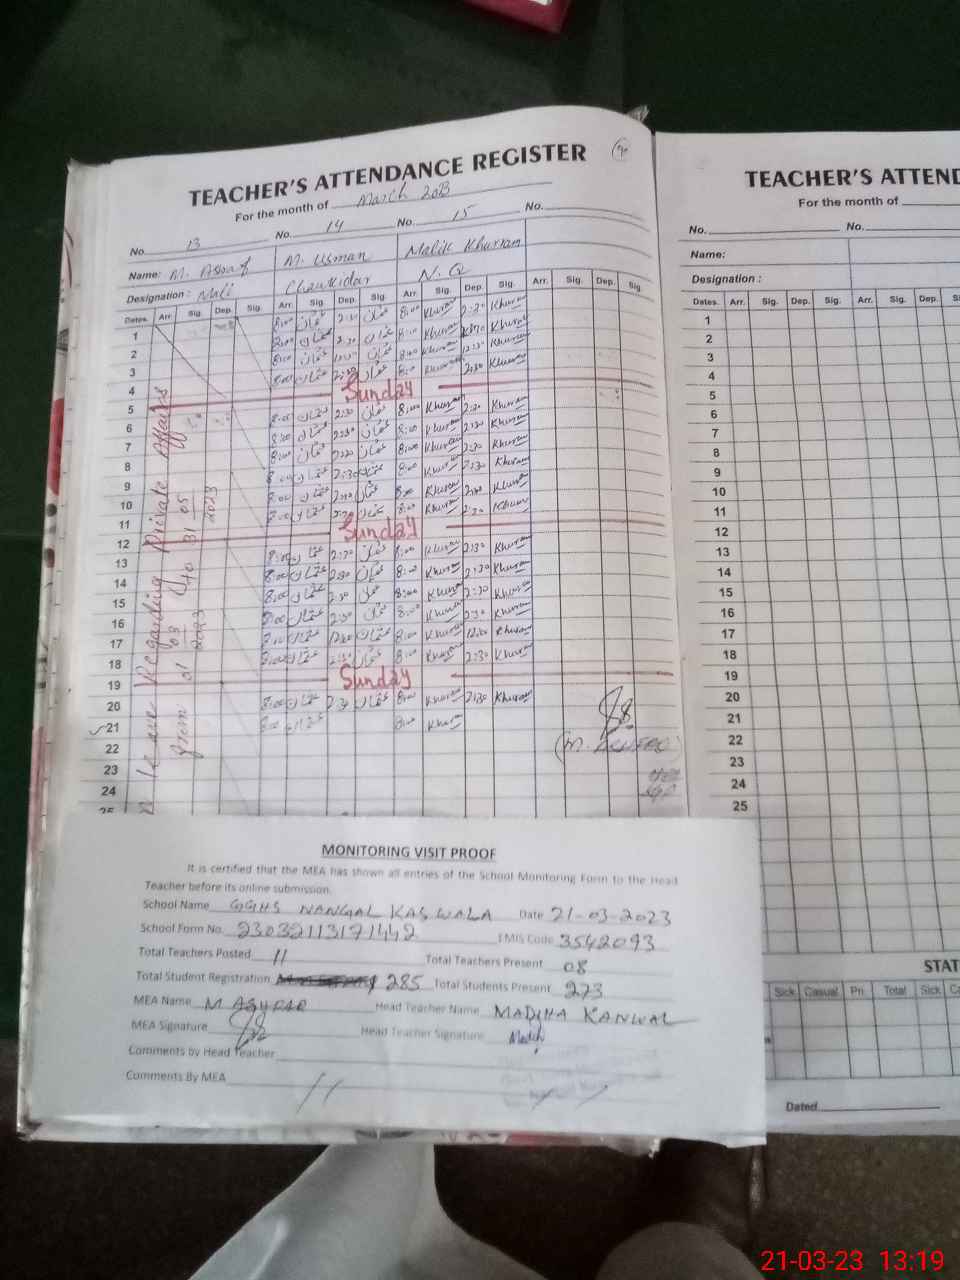 TEACHER'S ATTENDANCE REGISTER
For the month of March 2023
No. 13 No. 14 No. 15 No.
Name: M. Ashraf M. Usman Malik Khurram
Designation: Mali Chaukidar N.Q
Dates. Arr. Sig. Dep. Sig. Arr. Sig. Dep. Sig. Arr. Sig. Dep. Sig. Arr. Sig. Dep. Sig.
1 8:00 عثمان 2:30 عثمان 8:00 Khuram 2:30 Khuram
2 8:00 عثمان 2:30 عثمان 8:00 Khuram Khuram
3 8:00 عثمان عثمان 8:00 Khuram 12:30 Khuram
4 8:00 عثمان 2:30 عثمان 8:00 Khuram 2:30 Khuram
5 Sunday
6 8:00 عثمان 2:30 عثمان 8:00 Khuram 2:30 Khuram
7 8:00 عثمان 2:30 عثمان 8:00 Khuram 2:30 Khuram
8 8:00 عثمان 2:30 عثمان 8:00 Khuram 2:30 Khuram
9 8:00 عثمان 2:30 عثمان 8:00 Khuram 2:30 Khuram
10 8:00 عثمان عثمان 8:00 Khuram Khuram
11 8:00 عثمان 2:30 عثمان 8:00 Khuram 2:30 Khuram
12 Sunday
13 8:00 عثمان 2:30 عثمان 8:00 Khuram 2:30 Khuram
14 8:00 عثمان 2:30 عثمان 8:00 Khuram 2:30 Khuram
15 8:00 عثمان 2:30 عثمان 8:00 Khuram 2:30 Khuram
16 8:00 عثمان 2:30 عثمان 8:00 Khuram 2:30 Khuram
17 8:00 عثمان 12:00 عثمان 8:00 Khuram 12:00 Khuram
18 8:00 عثمان 2:30 عثمان 8:00 Khuram 2:30 Khuram
19 Sunday
20 8:00 عثمان 2:30 عثمان 8:00 Khuram 2:30 Khuram
21 8:00 عثمان 8:00 Khuram
22
23
24
25
Leave Regarding Private Affairs
from 01 03 2023 to 31 05 2023
(M. ASHRAF)
TEACHER'S ATTEND
For the month of
No. No.
Name:
Designation :
Dates. Arr. Sig. Dep. Sig. Arr. Sig. Dep. Sig.
1
2
3
4
5
6
7
8
9
10
11
12
13
14
15
16
17
18
19
20
21
22
23
24
25
STAT
Sick Casual Pri. Total Sick Ca
Dated
MONITORING VISIT PROOF
It is certified that the MEA has shown all entries of the School Monitoring Form to the Head
Teacher before its online submission.
School Name GGHS NANGAL KASWALA Date 21-03-2023
School Form No. 23032113171442 EMIS Code 3542093
Total Teachers Posted 11 Total Teachers Present 08
Total Student Registration 285 Total Students Present 273
MEA Name M ASHRAF Head Teacher Name MADIHA KANWAL
MEA Signature Head Teacher Signature Madih
Comments by Head Teacher
Comments By MEA
21-03-23 13:19